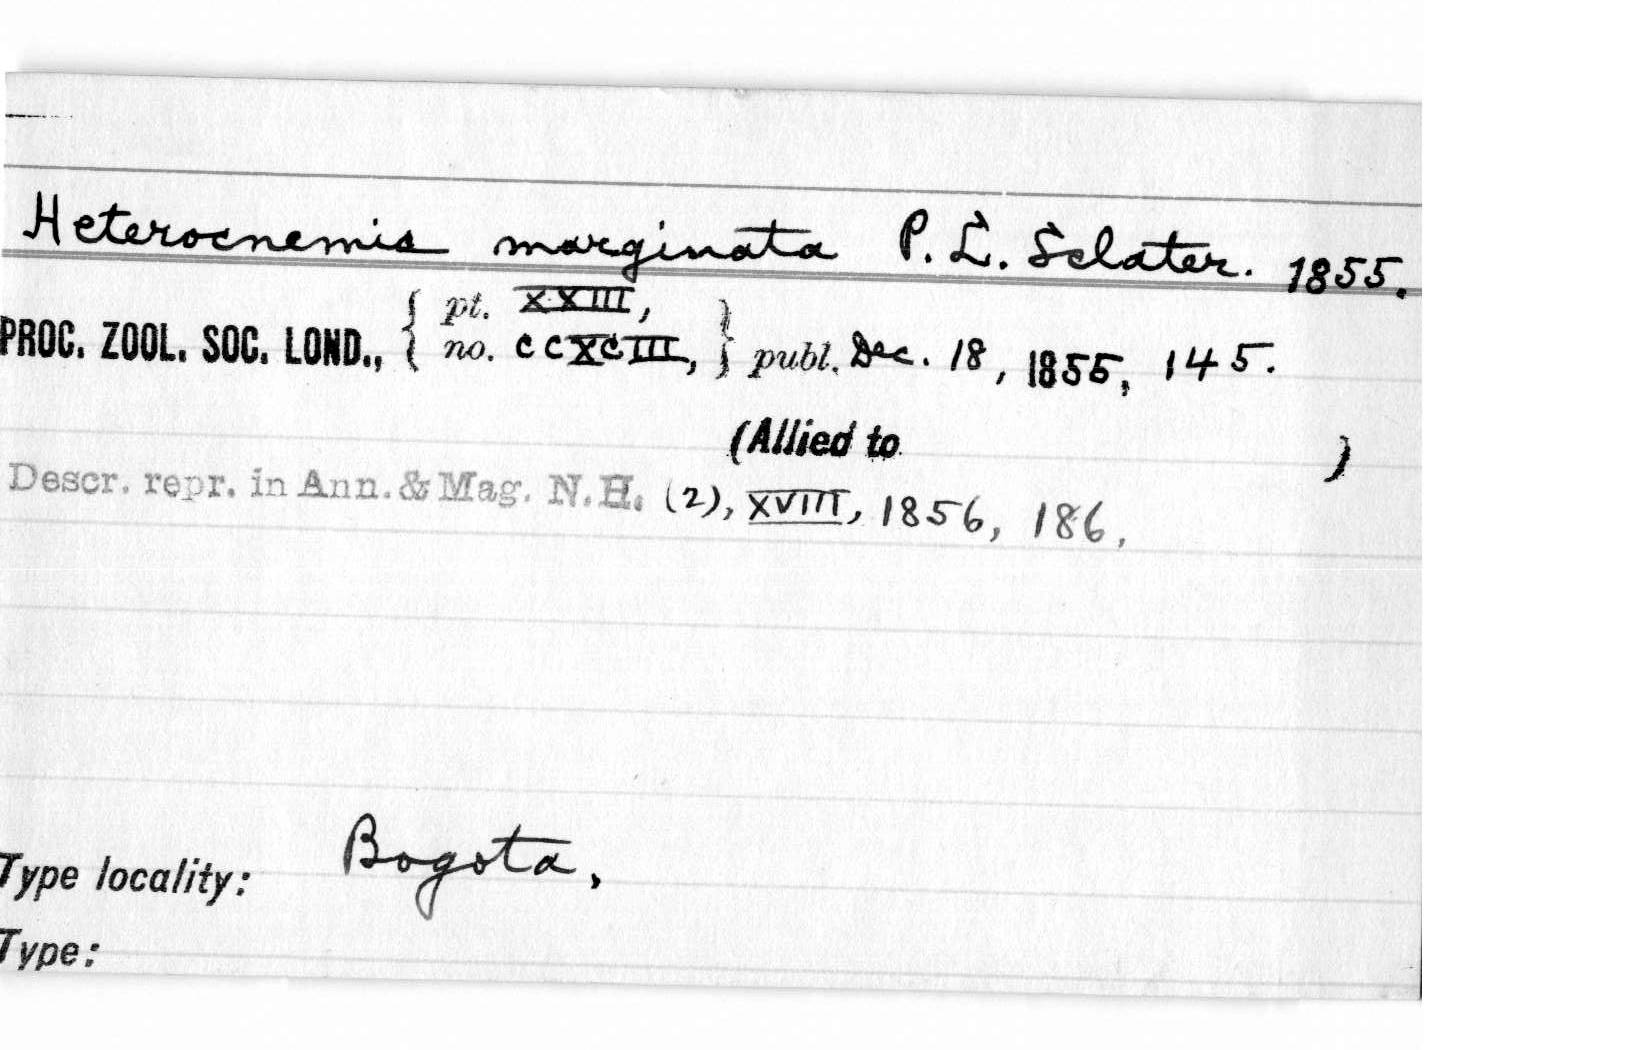 Heterocnemis marginata P. L. Sclater. 1855.
PROC. ZOOL. SOC. LOND., { pt. XXIII, no. CCXCIII, } publ. Dec. 18, 1855, 145.
(Allied to )
Descr. repr. in Ann. & Mag. N. H. (2), XVIII, 1856, 186.
Type locality: Bogota,
Type: